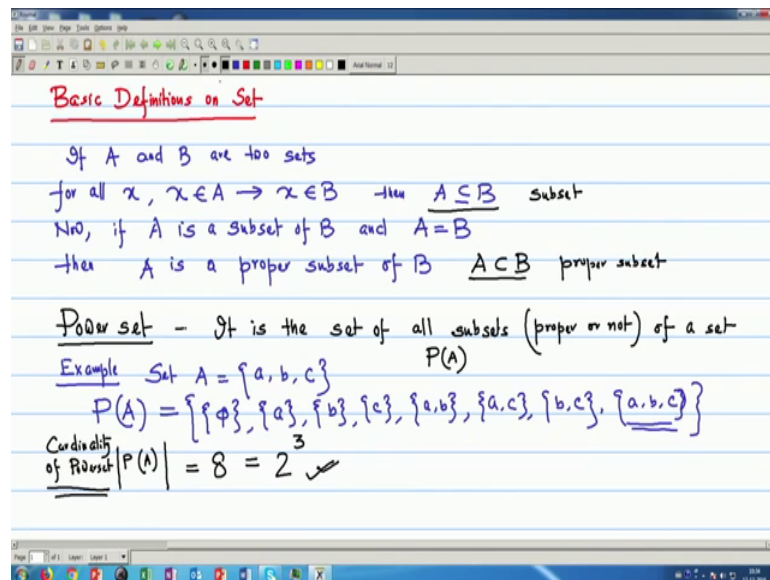 Journal
File Edit View Page Tools Options Help
Arial Normal 12
Basic Definitions on Set
If A and B are two sets
for all x, x ∈ A → x ∈ B then A ⊆ B subset
Now, if A is a subset of B and A = B
then A is a proper subset of B A ⊂ B proper subset
Power set - It is the set of all subsets (proper or not) of a set
P(A)
Example Set A = {a, b, c}
P(A) = {{φ}, {a}, {b}, {c}, {a,b}, {a,c}, {b,c}, {a,b,c}}
Cardinality
of Powerset |P(A)| = 8 = 2³ ✓
Page 1 of 1 Layer: Layer 1